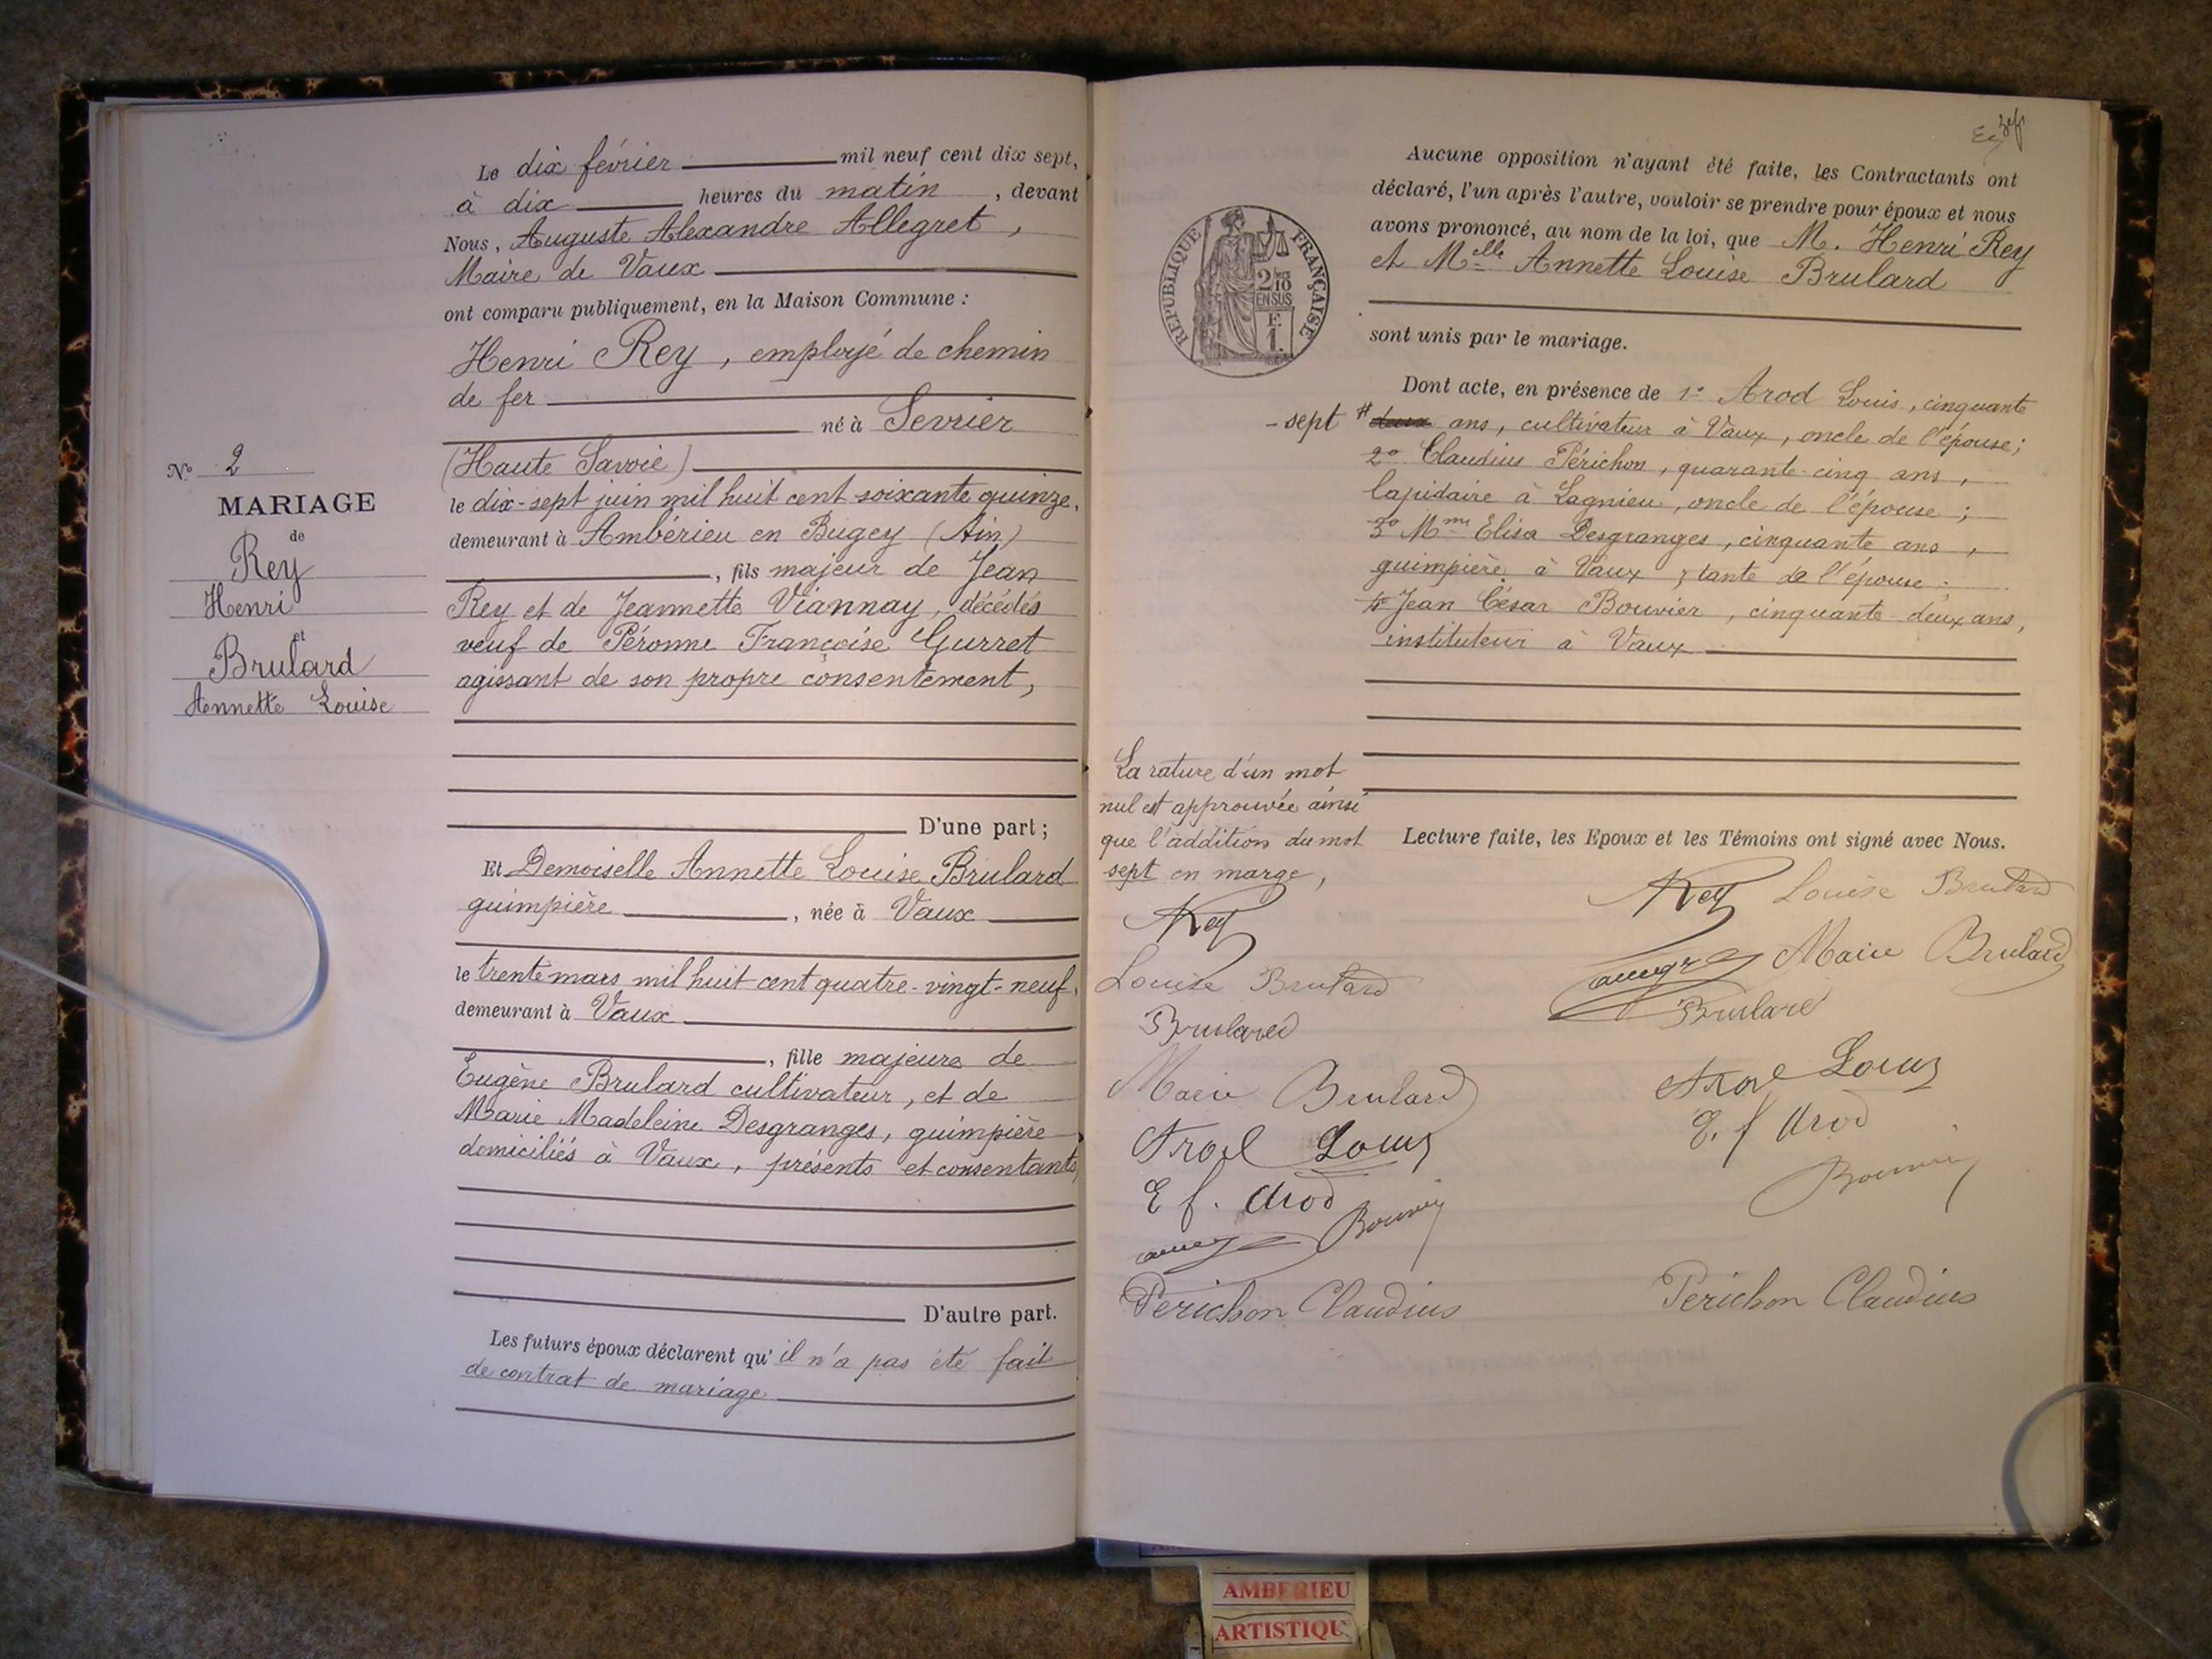 N° 2
MARIAGE
de
Rey
Henri
et
Brulard
Annette Louise
Le dix février mil neuf cent dix sept,
à dix heures du matin, devant
Nous, Auguste Alexandre Allegret,
Maire de Vaux
ont comparu publiquement, en la Maison Commune :
Henri Rey, employé de chemin
de fer
né à Sevrier
(Haute Savoie)
le dix-sept juin mil huit cent soixante quinze,
demeurant à Ambérieu en Bugey (Ain)
, fils majeur de Jean
Rey et de Jeannette Viannay, décédés
veuf de Péronne Françoise Gurret
agissant de son propre consentement,
D'une part ;
Et Demoiselle Annette Louise Brulard
guimpière, née à Vaux
le trente mars mil huit cent quatre-vingt-neuf,
demeurant à Vaux
, fille majeure de
Eugène Brulard cultivateur, et de
Marie Madeleine Desgranges, guimpière
domiciliés à Vaux, présents et consentants,
D'autre part.
Les futurs époux déclarent qu'il n'a pas été fait
de contrat de mariage
Aucune opposition n'ayant été faite, les Contractants ont
déclaré, l'un après l'autre, vouloir se prendre pour époux et nous
avons prononcé, au nom de la loi, que M. Henri Rey
et Melle Annette Louise Brulard
sont unis par le mariage.
RÉPUBLIQUE FRANÇAISE
2/10
EN SUS
F.
1.
Dont acte, en présence de 1° Arod Louis, cinquante
- sept # deux ans, cultivateur à Vaux, oncle de l'épouse ;
2° Claudius Périchon, quarante-cinq ans,
lapidaire à Lagnieu, oncle de l'épouse ;
3° Mme Elisa Desgranges, cinquante ans,
guimpière à Vaux, tante de l'épouse ;
4° Jean César Bouvier, cinquante-deux ans,
instituteur à Vaux
La rature d'un mot
nul est approuvée ainsi
que l'addition du mot
sept en marge,
Rey
Louise Brulard
Brulard
Marie Brulard
Arod Louis
E f. Arod
Bouvier
Perichon Claudius
Lecture faite, les Epoux et les Témoins ont signé avec Nous.
Rey Louise Brulard
Marie Brulard
Brulard
Arod Louis
E. f Arod
Bouvier
Perichon Claudius
AMBERIEU
ARTISTIQU